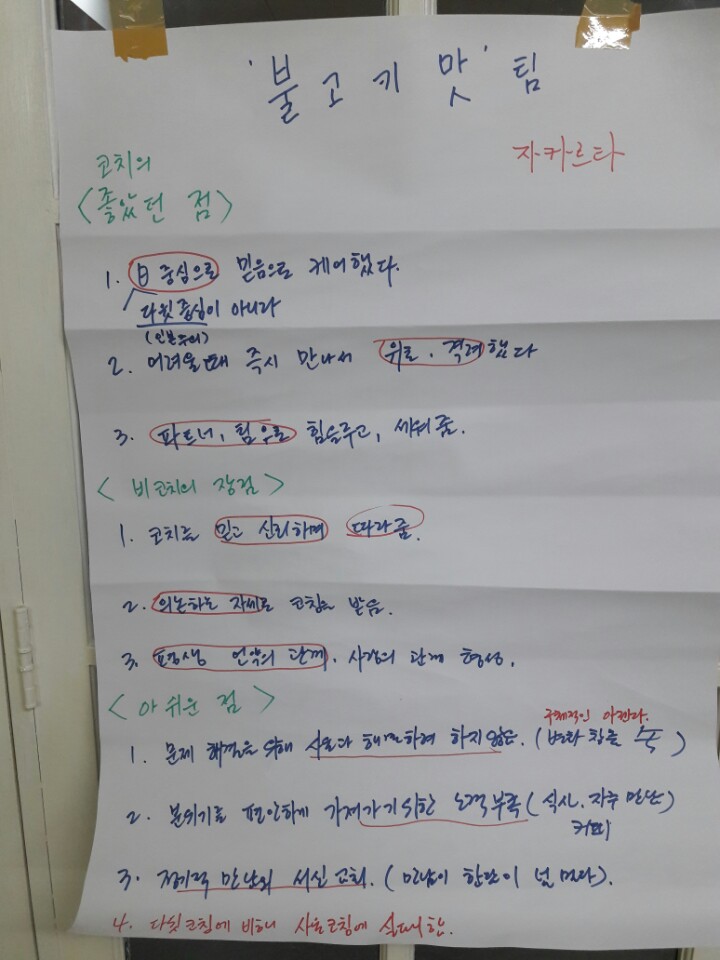 '불고기 맛' 팀
자카르타
코치의
<좋았던 점>
1. 日 중심으로 믿음으로 케어했다.
다윗중심이 아니라
(인본주의)
2. 어려울때 즉시 만나서 위로, 격려했다
3. 파트너, 팀으로 힘을주고, 세워줌.
< 비코치의 장점 >
1. 코치를 믿고 신뢰하며 따라줌.
2. 의논하는 자세로 코칭을 받음.
3. 평생 언약의 관계. 사랑의 관계 형성.
< 아쉬운 점 >
구체적인 아젠다.
1. 문제 해결을 위해 사울과 해결하려 하지않은. (변화 창출 속)
2. 분위기를 편안하게 가져가기위한 노력부족 (식사, 자주 만난)
커피
3. 만남과 서신 교회. (만남이 한란이 넘 멀다).
4. 다윗코칭에 비해 사울코칭에 실패함.